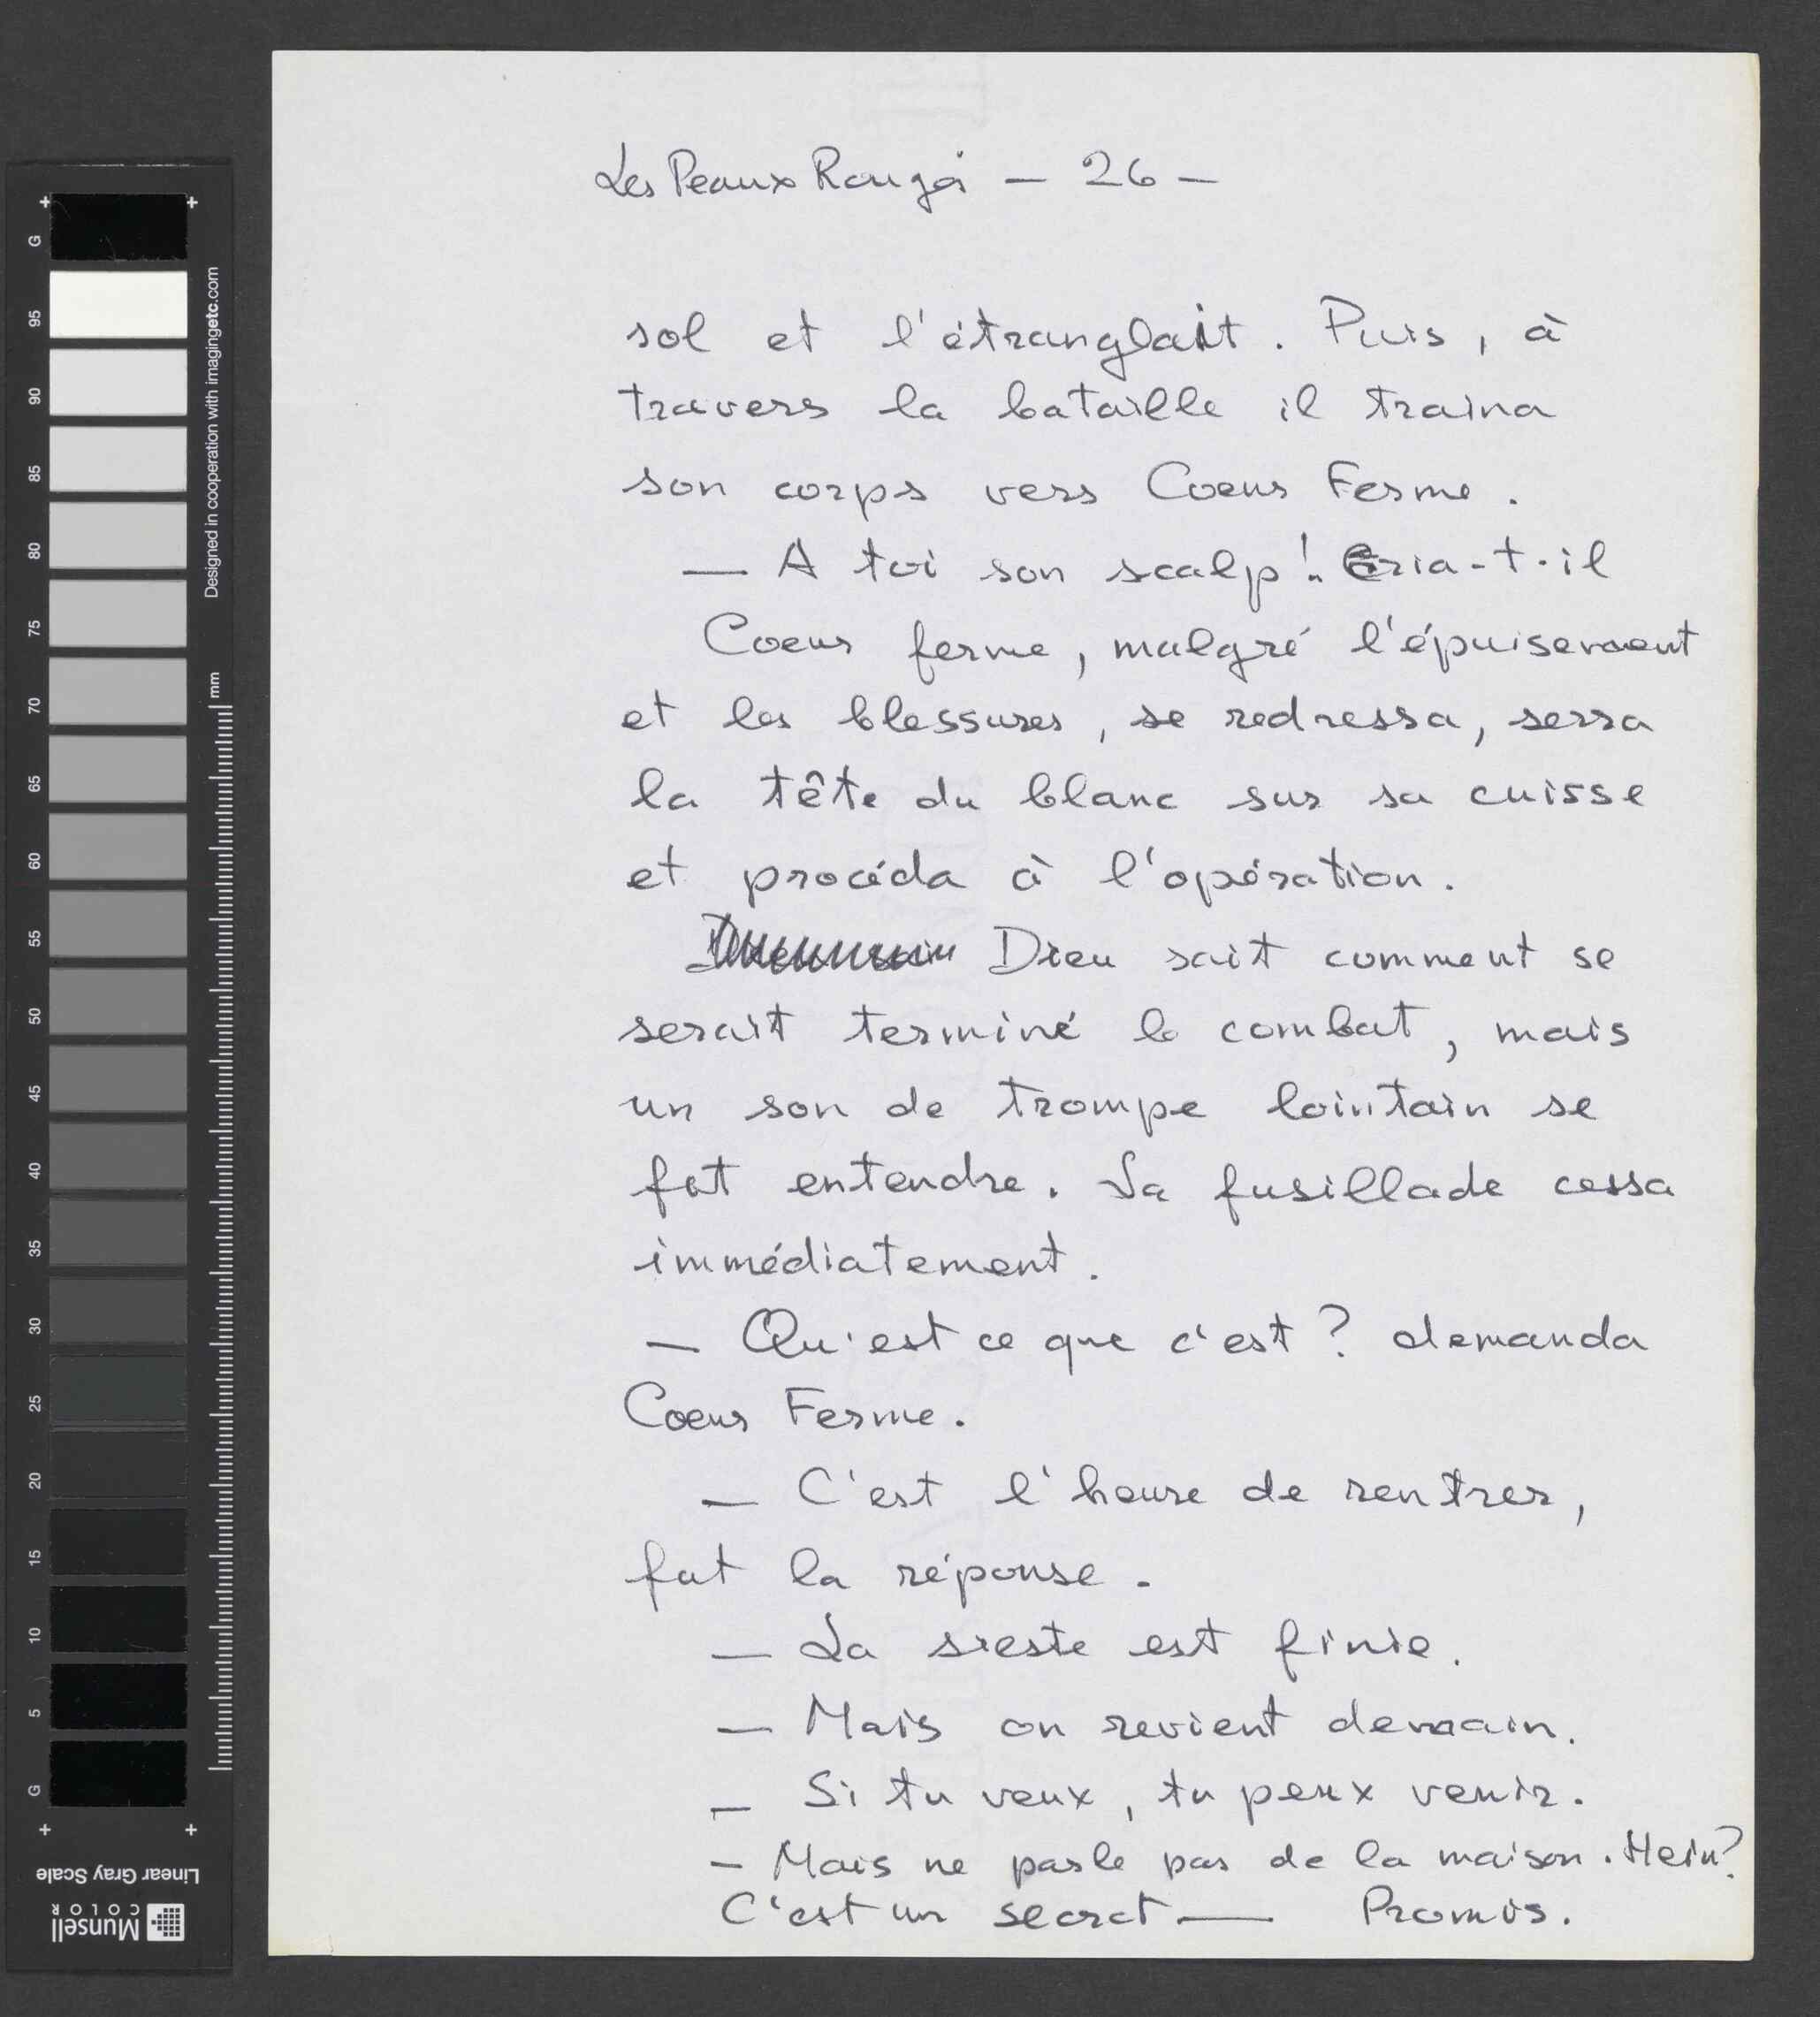 Les Peaux Rouges — 26 —
sol et l'étranglait. Puis, à
travers la bataille il traina
son corps vers Coeur Ferme.
— A toi son scalp! Cria-t-il
Coeur ferme, malgré l'épuisement
et les blessures, se redressa, serra
la tête du blanc sur sa cuisse
et procéda à l'opération.
Dieu sait comment se
serait terminé le combat, mais
un son de trompe lointain se
fit entendre. La fusillade cessa
immédiatement.
— Qu'est ce que c'est? demanda
Coeur Ferme.
— C'est l'heure de rentrer,
fut la réponse.
— La sieste est finie.
— Mais on revient demain.
— Si tu veux, tu peux venir.
— Mais ne parle pas de la maison. Hein?
C'est un secret — Promis.
G
95
90
85
80
75
70
65
60
55
50
45
40
35
30
25
20
15
10
5
G
Designed in cooperation with imagingetc.com
mm
Linear Gray Scale
Munsell
COLOR